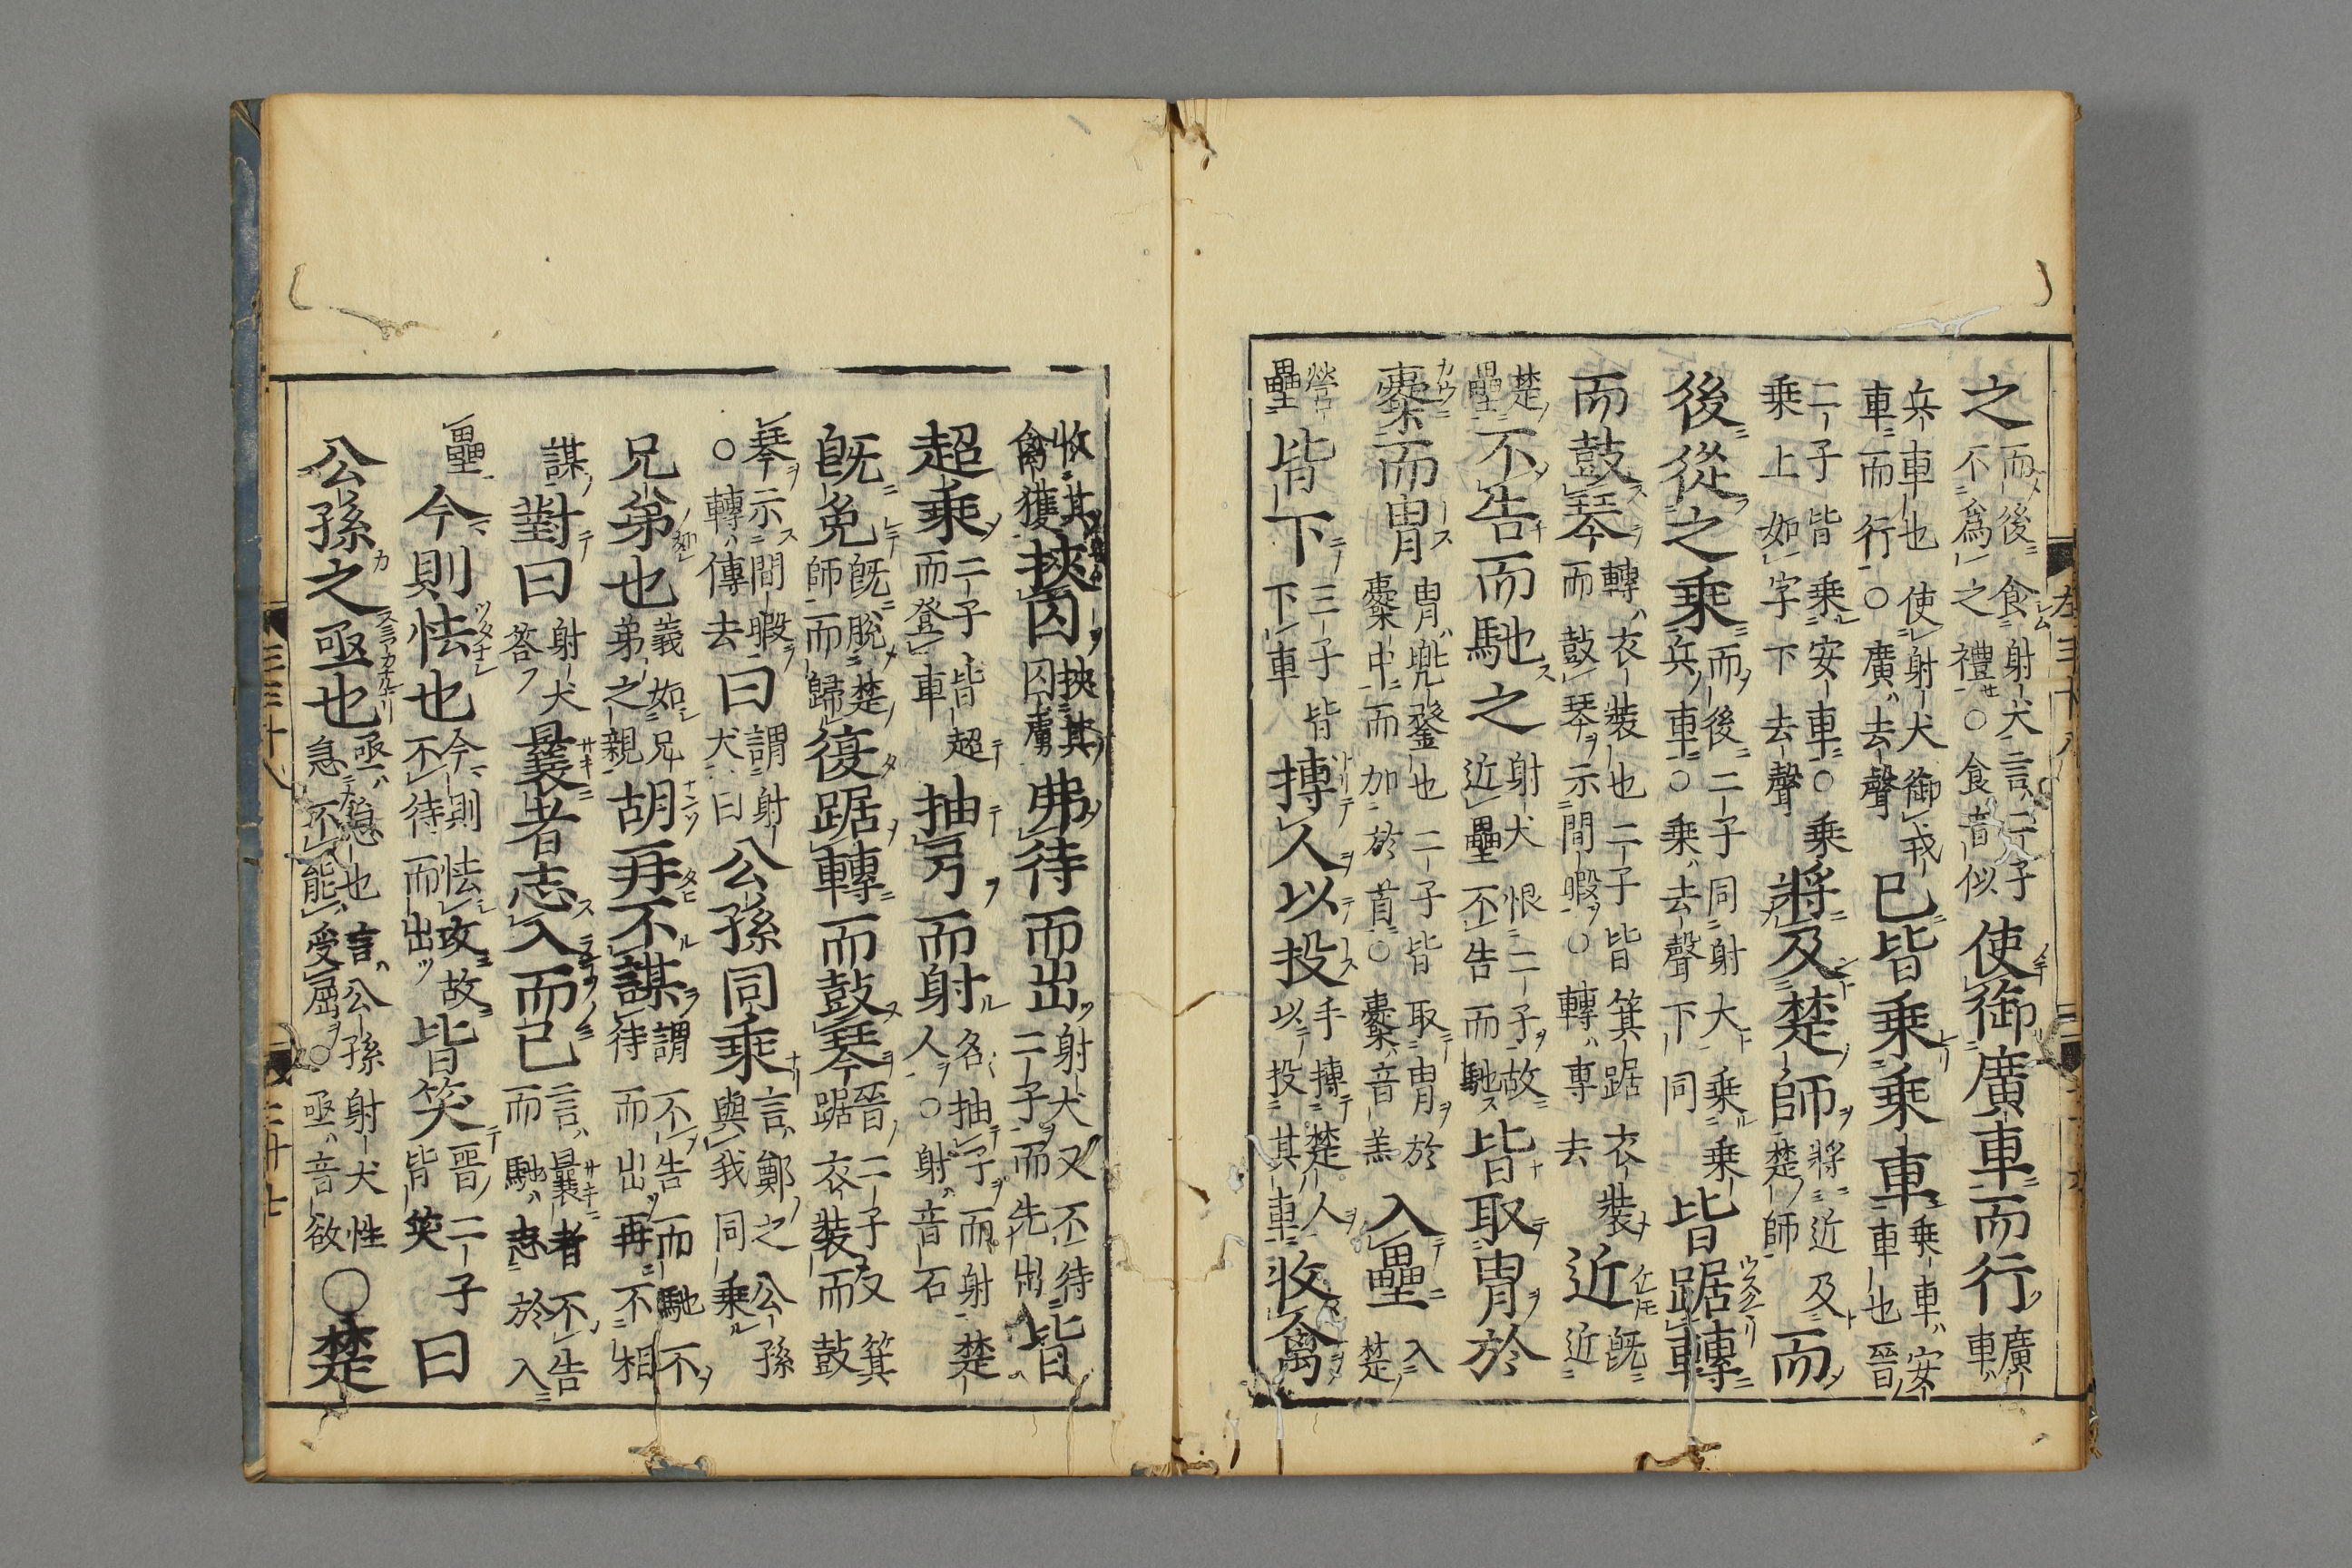 之而後食射犬言二子不爲之禮○食音似使御廣車而行廣車
兵車也使射犬御我車而行○廣去聲已皆乘乘車乘車安車也晉
二子皆乘安車○乘乘上如字下去聲將及楚師將近及楚師而
後從之乘而後二子同射犬乘乘兵車○乘去聲下同皆踞轉
而鼓琴轉衣裝也二子皆箕踞衣裝而鼓琴示間暇○轉專去近既近
楚壘不告而馳之射犬恨二子故近壘不告而馳皆取冑於
櫜而冑冑兜鍪也二子皆取冑於櫜中而加於首○櫜音羔入壘入楚
營壘皆下二子皆下車搏人以投手搏楚人以投其車收禽
收其禽獲挾囚挾其囚虜弗待而出射犬又不待二子而先出皆
超乘二子皆超而登車抽弓而射各抽子而射楚人○射音石
既免既脫楚師而歸復踞轉而鼓琴晉二子又箕踞衣裝而鼓
琴示間暇○轉傳去曰謂射犬曰公孫同乘言鄭之公孫與我同乘
兄弟也義如兄弟之親胡再不謀謂不告而馳不待而出再不相
謀對曰射犬答曩者志入而已言曩者不告而馳志於入
壘今則怯也今則怯故不待而出故皆笑晉二子皆笑曰
公孫之亟也亟急也言公孫射犬性急不能受屈○亟音欲○楚